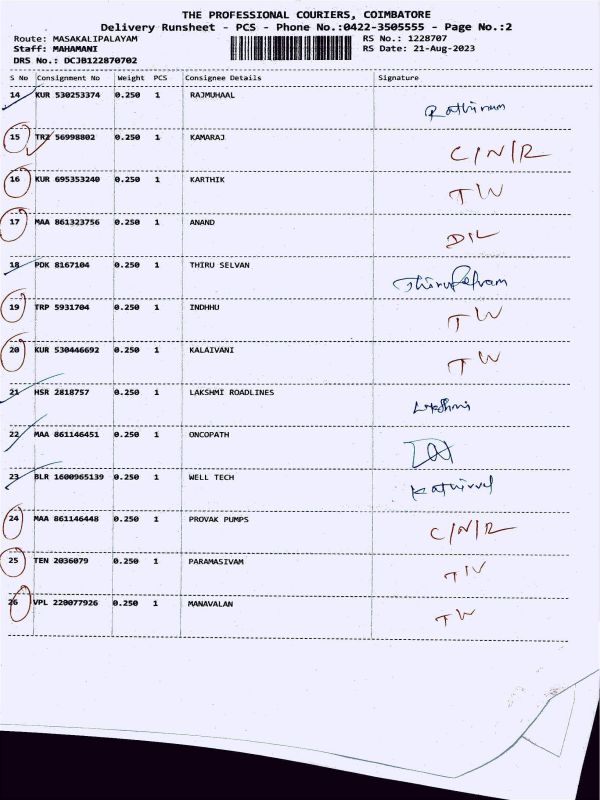 THE PROFESSIONAL COURIERS, COIMBATORE
Delivery Runsheet - PCS - Phone No.:0422-3505555 - Page No.:2
Route: MASAKALIPALAYAM RS No.: 1228707
Staff: MAHAMANI RS Date: 21-Aug-2023
DRS No.: DCJB122870702
S No Consignment No Weight PCS Consignee Details Signature
14 KUR 530253374 0.250 1 RAJMUHAAL
15 TRZ 56998802 0.250 1 KAMARAJ C/N/R
16 KUR 695353240 0.250 1 KARTHIK TW
17 MAA 861323756 0.250 1 ANAND D/L
18 PDK 8167104 0.250 1 THIRU SELVAN
19 TRP 5931704 0.250 1 INDHHU TW
20 KUR 530446692 0.250 1 KALAIVANI TW
21 HSR 2818757 0.250 1 LAKSHMI ROADLINES Lakshmi
22 MAA 861146451 0.250 1 ONCOPATH
23 BLR 1600965139 0.250 1 WELL TECH
24 MAA 861146448 0.250 1 PROVAK PUMPS C/N/R
25 TEN 2036079 0.250 1 PARAMASIVAM TW
26 VPL 220077926 0.250 1 MANAVALAN TW